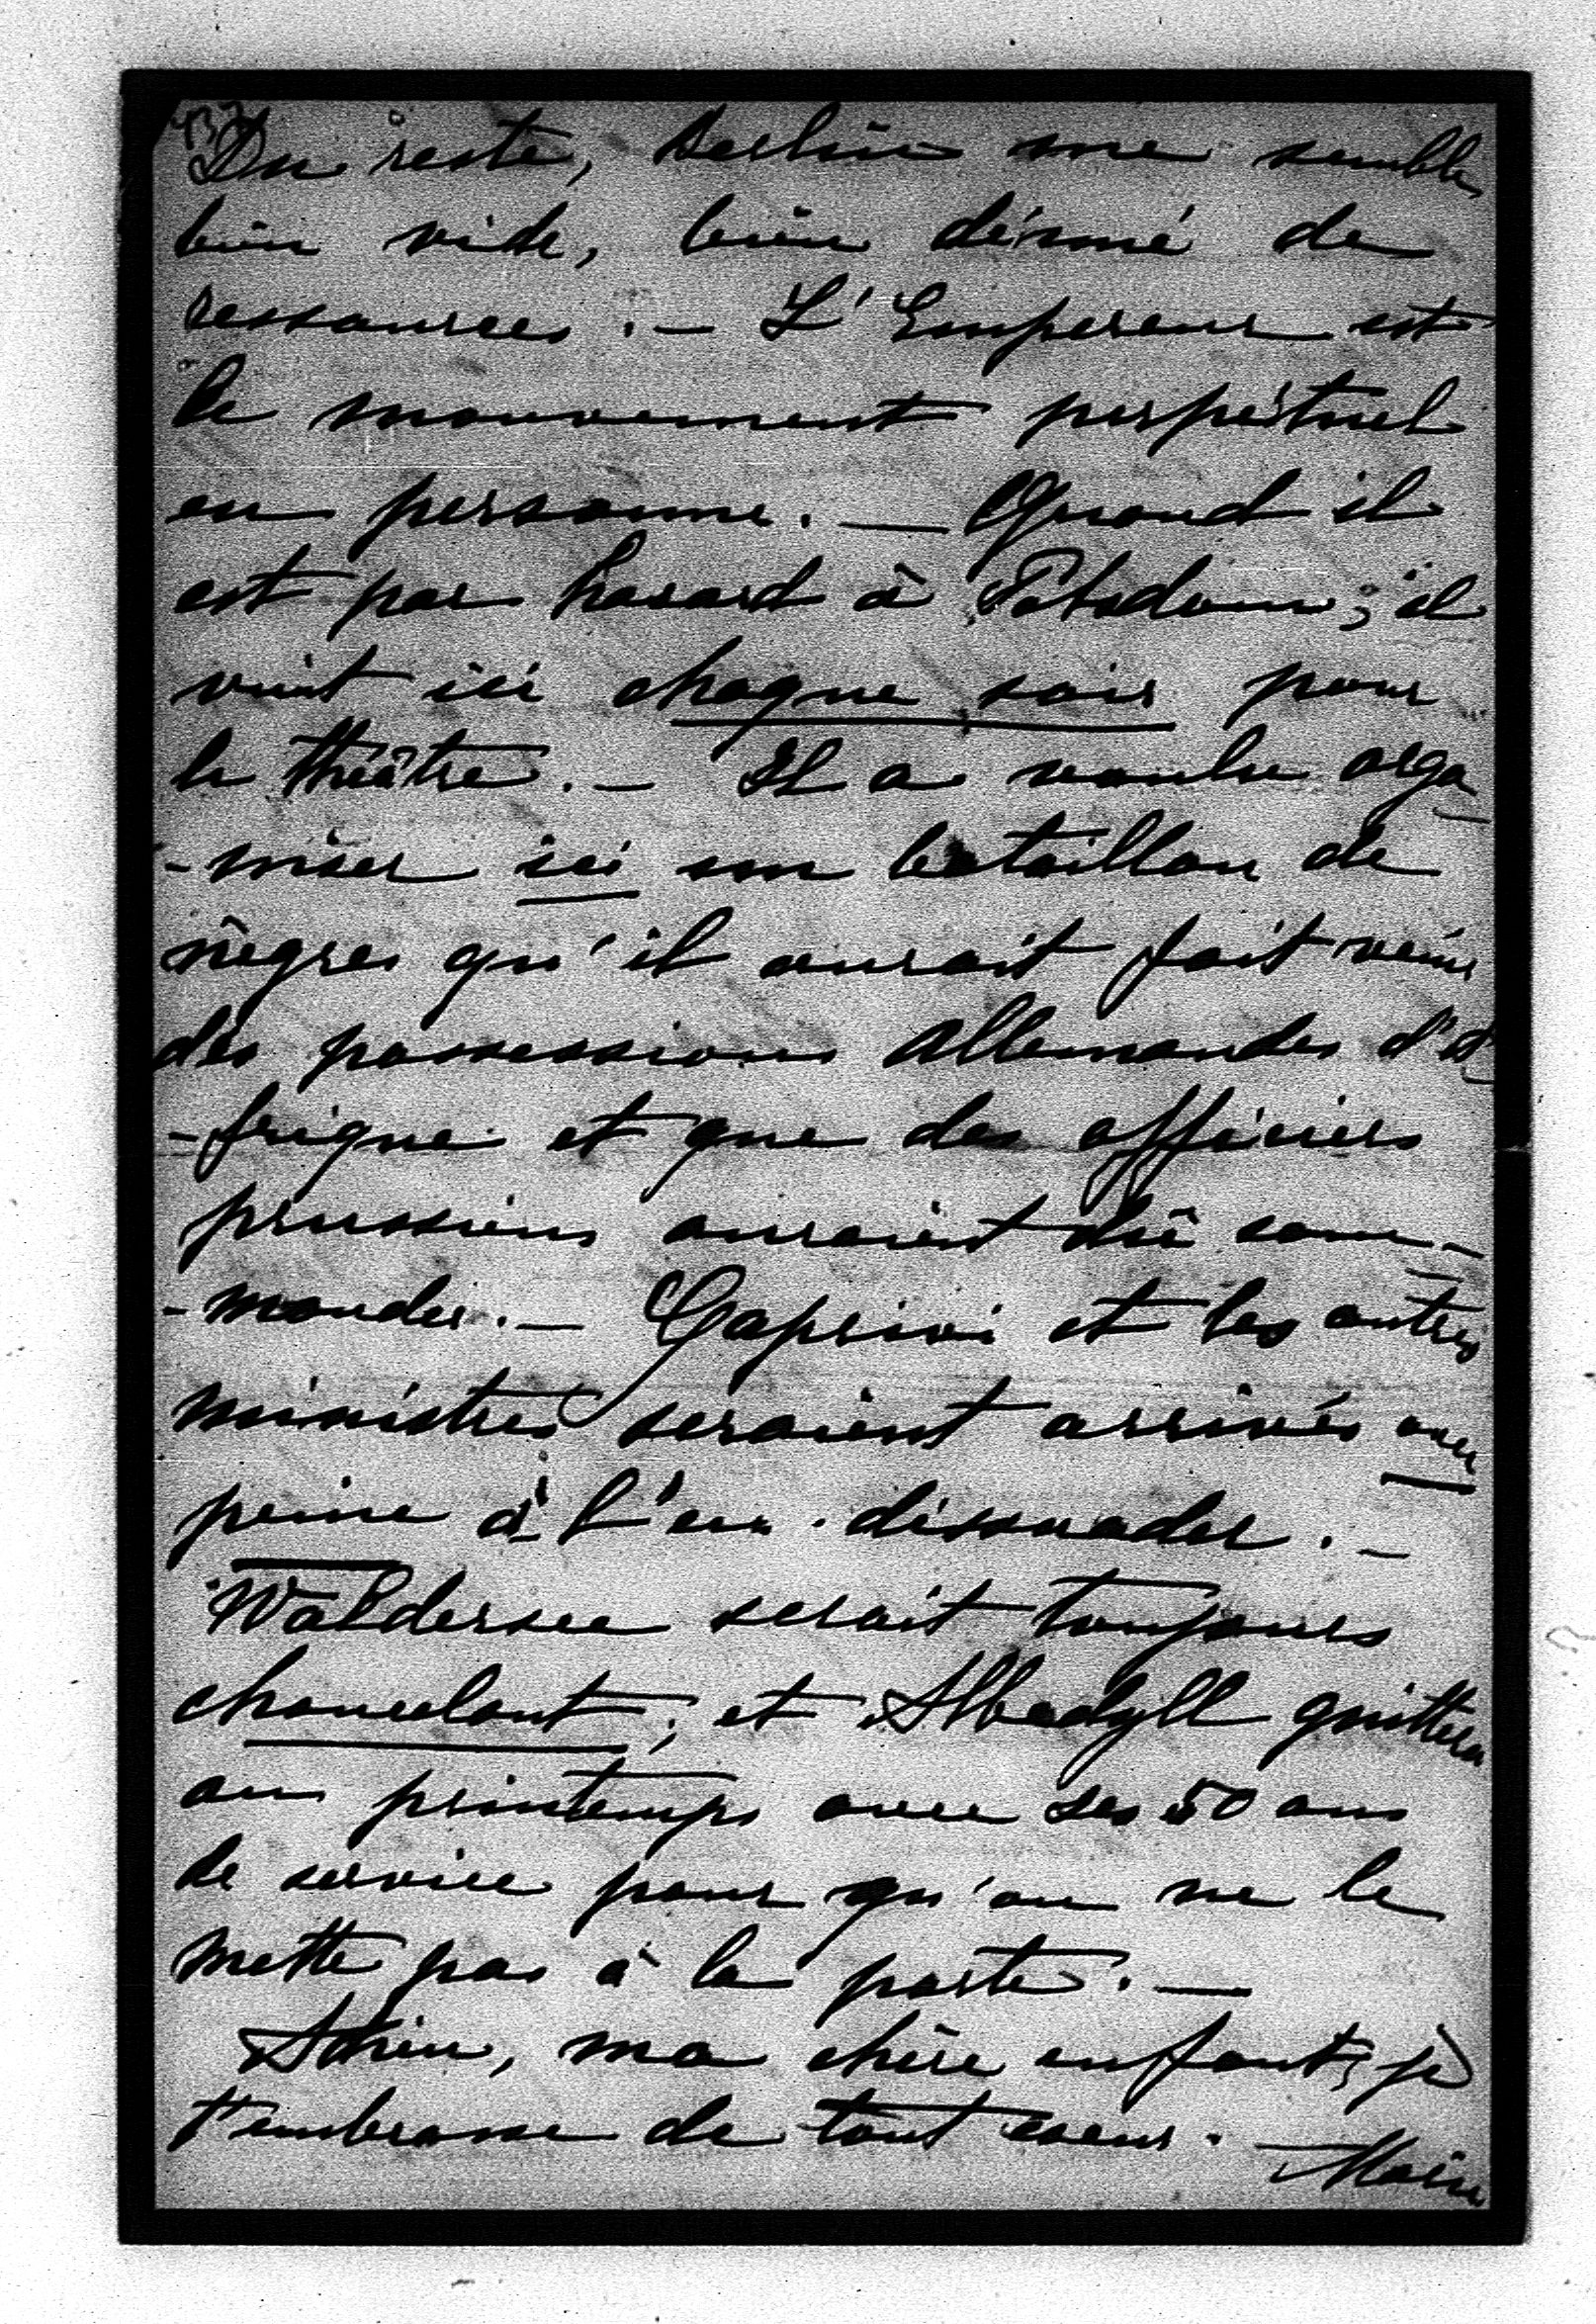 Du reste, Berlin me semble
bien vide, bien dénué de
ressources. — L'Empereur est
le mouvement perpétuel
en personne. — Quand il
est par hasard à Potsdam, il
vient ici chaque soir pour
le théâtre. — Il a voulu orga
-niser ici un bataillon de
nègres qu'il aurait fait venir
des possessions Allemandes d'A
-frique et que des officiers
prussiens auraient dû com-
-mander. — Caprivi et les autres
ministres seraient arrivés avec
peine à l'en dissuader. —
Waldersee serait toujours
chancelant, et Albedyll quittera
au printemps avec ses 50 ans
de service pour qu'on ne le
mette pas à la porte. —
Adieu, ma chère enfant, je
t'embrasse de tout coeur. —
Marie